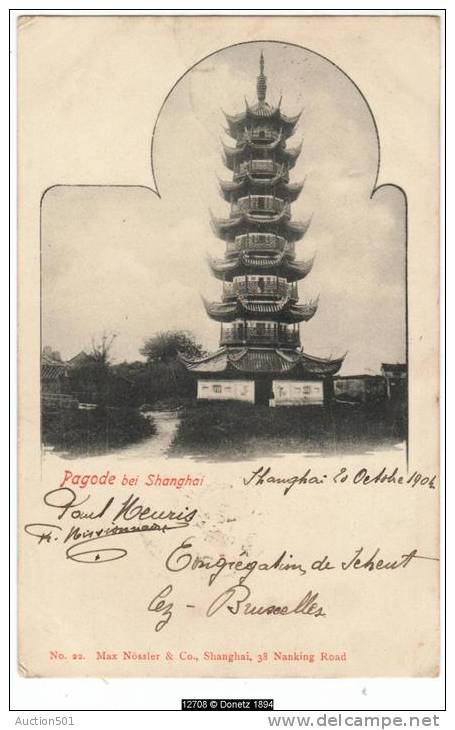 Pagode bei Shanghai
Shanghai 20 Octobre 1904
Paul Heuris
Missionnaire
Congrégation de Scheut
lez - Bruxelles
No. 22. Max Nössler & Co., Shanghai, 38 Nanking Road
12708 © Donetz 1894
Auction501